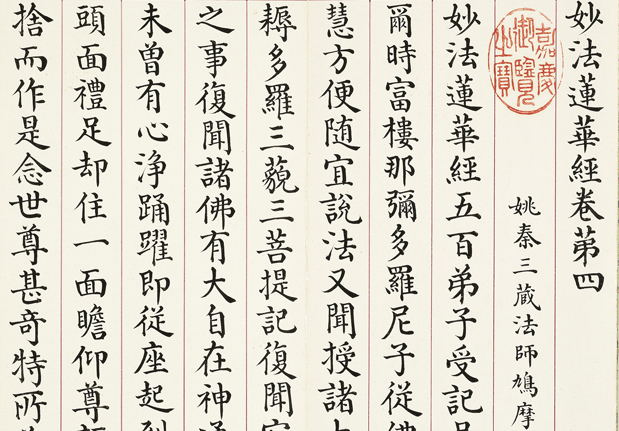 妙法蓮華經卷苐四
嘉慶御覽之寶
姚秦三蔵法師鳩摩
妙法蓮華經五百弟子受記品
爾時富樓那彌多羅尼子從佛
慧方便随宜說法又聞授諸
耨多羅三藐三菩提記復聞
之事復聞諸佛有大自在神通
未曾有心浄踊躍即從座起到
頭面禮足却住一面瞻仰尊
捨而作是念世尊甚奇特所